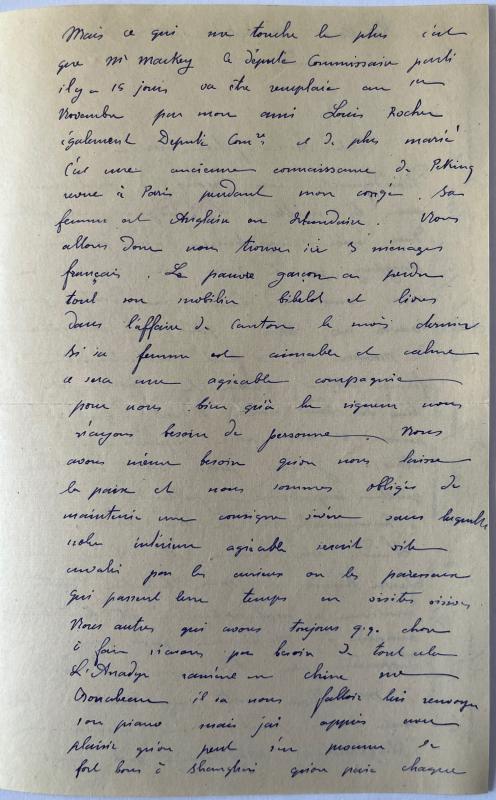 Mais ce qui me touche le plus c'est
que Mr Mackey le député Commissaire parti
il y a 15 jours va être remplacé au 1er
Novembre par mon ami Louis Rocher
également Deputé Comre et de plus marié
C'est une ancienne connaissance de Peking
revue à Paris pendant mon congé. Sa
femme est Anglaise ou Irlandaise. Nous
allons donc nous trouver ici 3 ménages
français. Le pauvre garçon a perdu
tout son mobilier bibelots et livres
dans l'affaire de Canton le mois dernier
Si sa femme est aimable et calme
ce sera une agréable compagnie
pour nous bien qu'à la rigueur nous
n'ayons besoin de personne. Nous
avons même besoin qu'on nous laisse
la paix et nous sommes obligés de
maintenir une consigne sévère sans laquelle
notre intérieur agréable serait vite
envahi par les curieux ou les paresseux
qui passent leur temps en visites oisives
Nous autres qui avons toujours q.q. chose
à faire n'avons pas besoin de tout cela
L'Anadyr ramène en Chine me
il va nous falloir lui renvoyer
son piano mais j'ai appris avec
plaisir qu'on peut s'en procurer de
fort bons à Shanghai qu'on paie chaque